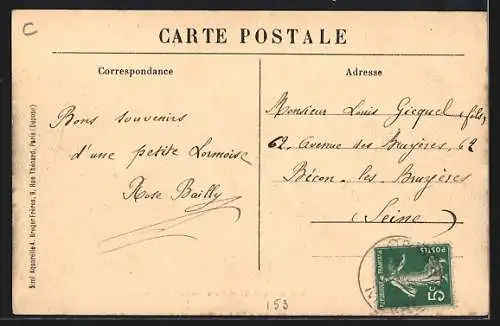 C
CARTE POSTALE
Correspondance
Adresse
Bons souvenirs
d'une petite Lormoise
Rose Bailly
Monsieur Louis Gicquel (fils)
62, Avenue des Bruyères, 62
Bécon-les-Bruyères
(Seine)
Simi Aquarelle A. Breger Frères, 9, Rue Thénard, Paris
REPUBLIQUE FRANÇAISE
POSTES
5c
153